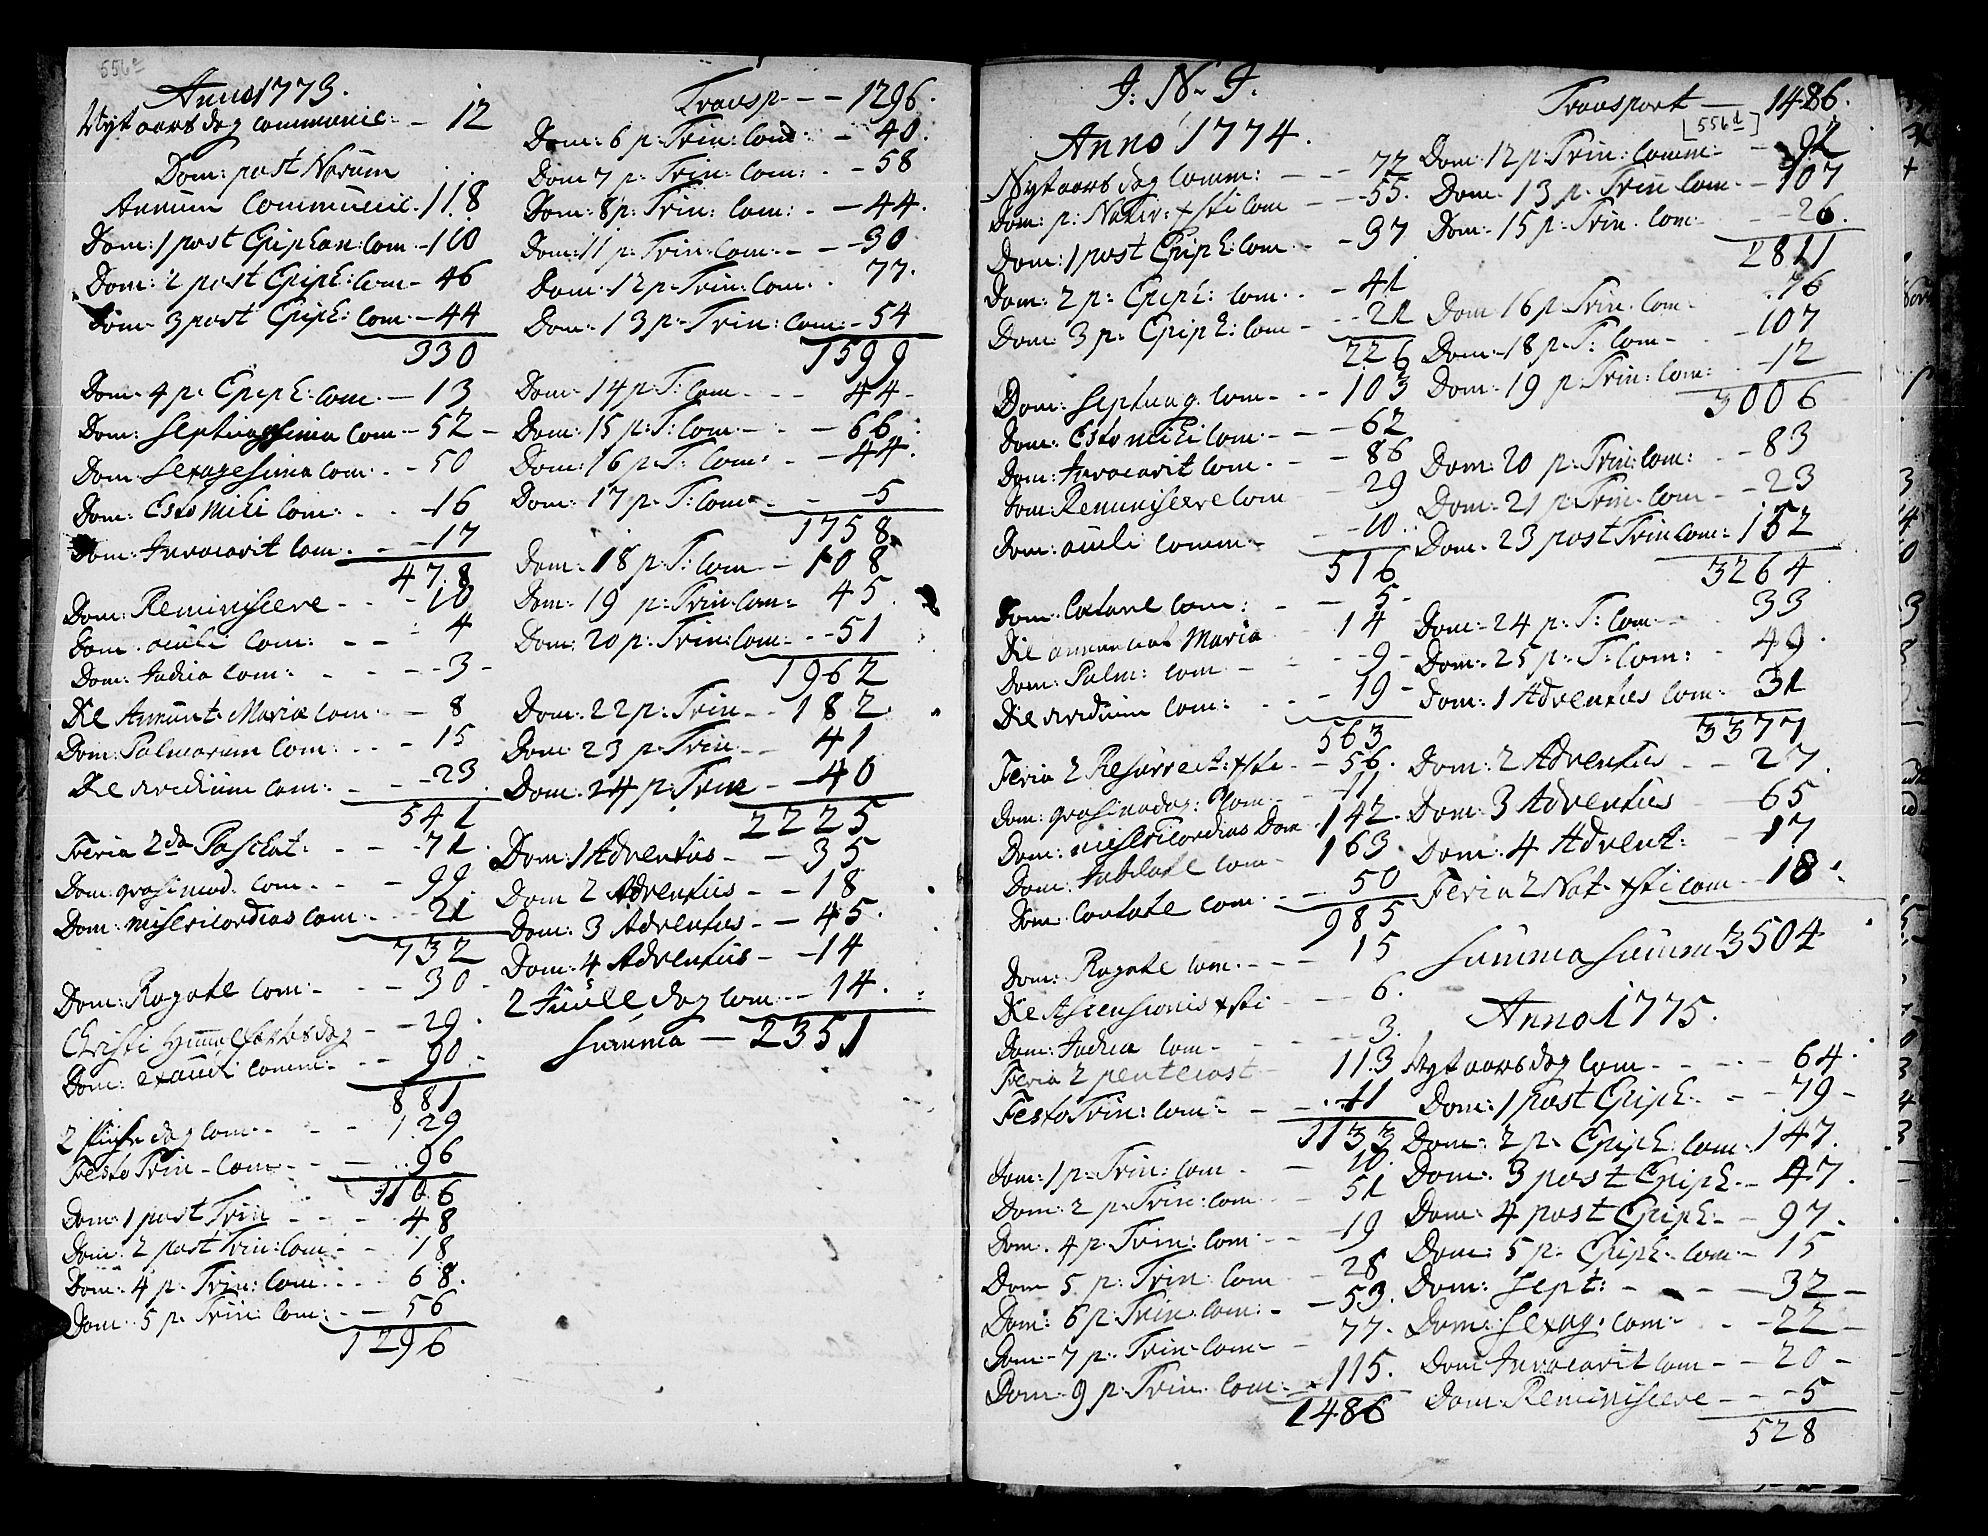 556c
Anno 1773.
Nytaarsdag communic: - 12
Dom: post Novum
Annum Communic. 118
Dom: 1 post Epiphan: com - 100
Dom: 2 post Epiph: com - 46
Dom- 3 post Epiph: com. - 44
330
Dom- 4 p: Epiph: com. - 13
Dom: Septuagesima com - 52 -
Dom: Sexagesima com. - 50
Dom: Esto mihi com: - 16
Dom: Invocavit com. - - 17
478
Dom: Reminiscere - - 10
Dom. oculi com: - - 4
Dom: Judica com: - - 3 -
Die Annunt. Mariæ com - 8
Dom: Palmarum com: - - 15
Die viridium com: - - 23
541
Feria 2da Paschat. - - 71.
Dom: qvasimod. com. - - 99
Dom: misericordias com. - 21
732
Dom: Rogate com: - - 30 -
Christi Himmelfartsdag - - 29.
Dom: exaudi comm: - - 90 -
881
2 Pinse dag com: - - 129
Festo Trin - com - - 96
1106
Dom: 1 post Trin - - - 48
Dom: 2 post Trin: com - - 18
Dom: 4 p. Trin: com: - - 68.
Dom: 5 p. Trin: com: - - 56
1296
Transp - - 1296.
Dom: 6 p: Trin: com: - 40.
Dom 7 p: Trin: com: - 58
Dom: 8 p: Trin: com: - 44.
Dom: 11 p: Trin: com. - - 30
Dom: 12 p: Trin: com: . 77.
Dom: 13 p: Trin: com: - 54
1599
Dom: 14 p: T: com - - - 44 -
Dom: 15 p: T: com - - - 66 :
Dom: 16 p: T: com: - - 44.
Dom: 17 p: T: com - - - 5
1758
Dom: 18 p: T: com - 108
Dom: 19 p: Trin: com - 45.
Dom: 20 p: Trin: com - - 51
1962
Dom: 22 p: Trin - - 182.
Dom: 23 p: Trin - - 41
Dom: 24 p: Trin - - 40
2225
Dom: 1 Adventus - - 35
Dom 2 Adventus - - 18
Dom: 3 Adventus - - 45.
Dom: 4 Adventus - - 14
2 Juule dag com: - 14.
Summa - 2351
J. N. J.
Anno 1774.
Nytaarsdag comm: - - 77
Dom: p: Nativ: Xsti com - - 55.
Dom: 1 post Epiph: com - - 37
Dom: 2 p: Epiph: com. - 41
Dom: 3 p. Epiph: com - - 21
226
Dom: Septuag. com - - 103
Dom: Esto mihi com - - - 62
Dom: Invocavit com. - - 86
Dom: Reminiscere com - 29
Dom: oculi comm - - 10.
516
Dom. Lætare com: - - 5 -
Die annunciat Maria 14
Dom: Palm: com - - 9 -
Die viridium com: - - 19 -
563
Feria 2 Resurrect: Xsti - - 56.
Dom: qvasimodog: com - - 11
Dom: misericordias Dom. 142 -
Dom: Jubilate com - 163.
Dom: Cantate com - - 50
985
Dom: Rogate com - - - 15
Die Ascensionis Xsti - - 6.
Dom: Judica com - - - 3.
Feria 2 pentecost - 113
Festo Trin: com: - - - 11
1133
Dom: 1 p: Trin: com - - 10.
Dom: 2 p: Trin: com - 51
Dom. 4 p. Trin: com - - 19
Dom 5 p: Trin: com - 28
Dom: 6 p: Trin: com: - - 53.
Dom: 7 p. Trin: com - - 77.
Dom: 9 p: Trin: com: - 115.
1486
Transport - 1486.
[556d]
Dom: 12 p: Trin: comm: - 92
Dom: 13 p: Trin com - 107
Dom: 15 p: Trin. com - - 26.
2811
Dom 16 p: Trin: com - 76
Dom: 18 p: T: com - - 107
Dom: 19 p: Trin: com: - 12
3006
Dom: 20 p: Trin: com: - - 83
Dom: 21 p: Trin: com - - 23
Dom: 23 post Trin com: 152
3264
Dom: 24 p: T: com - - 33
Dom: 25 p: T: com: - 49.
Dom: 1 Adventus com: 31
3377
Dom: 2 Adventus - - 27.
Dom: 3 Adventus - 65
Dom: 4 Advent: - 17
Feria 2 Nat. Xsti com - 18.
Summa Summ 3504
Anno 1775.
Nytaarsdag com - - - 64.
Dom: 1 Post Epiph. - - 79 -
Dom: 2 p. Epiph: com. 147.
Dom: 3 post Epiph. - 47.
Dom: 4 post Epiph. - 97.
Dom: 5 p: Epiph: com - 15
Dom: Sept: - - - 32 -
Dom: Sexag. com - - - 22 -
Dom Invocavit com - - 20 -
Dom: Reminiscere - - - 5
528